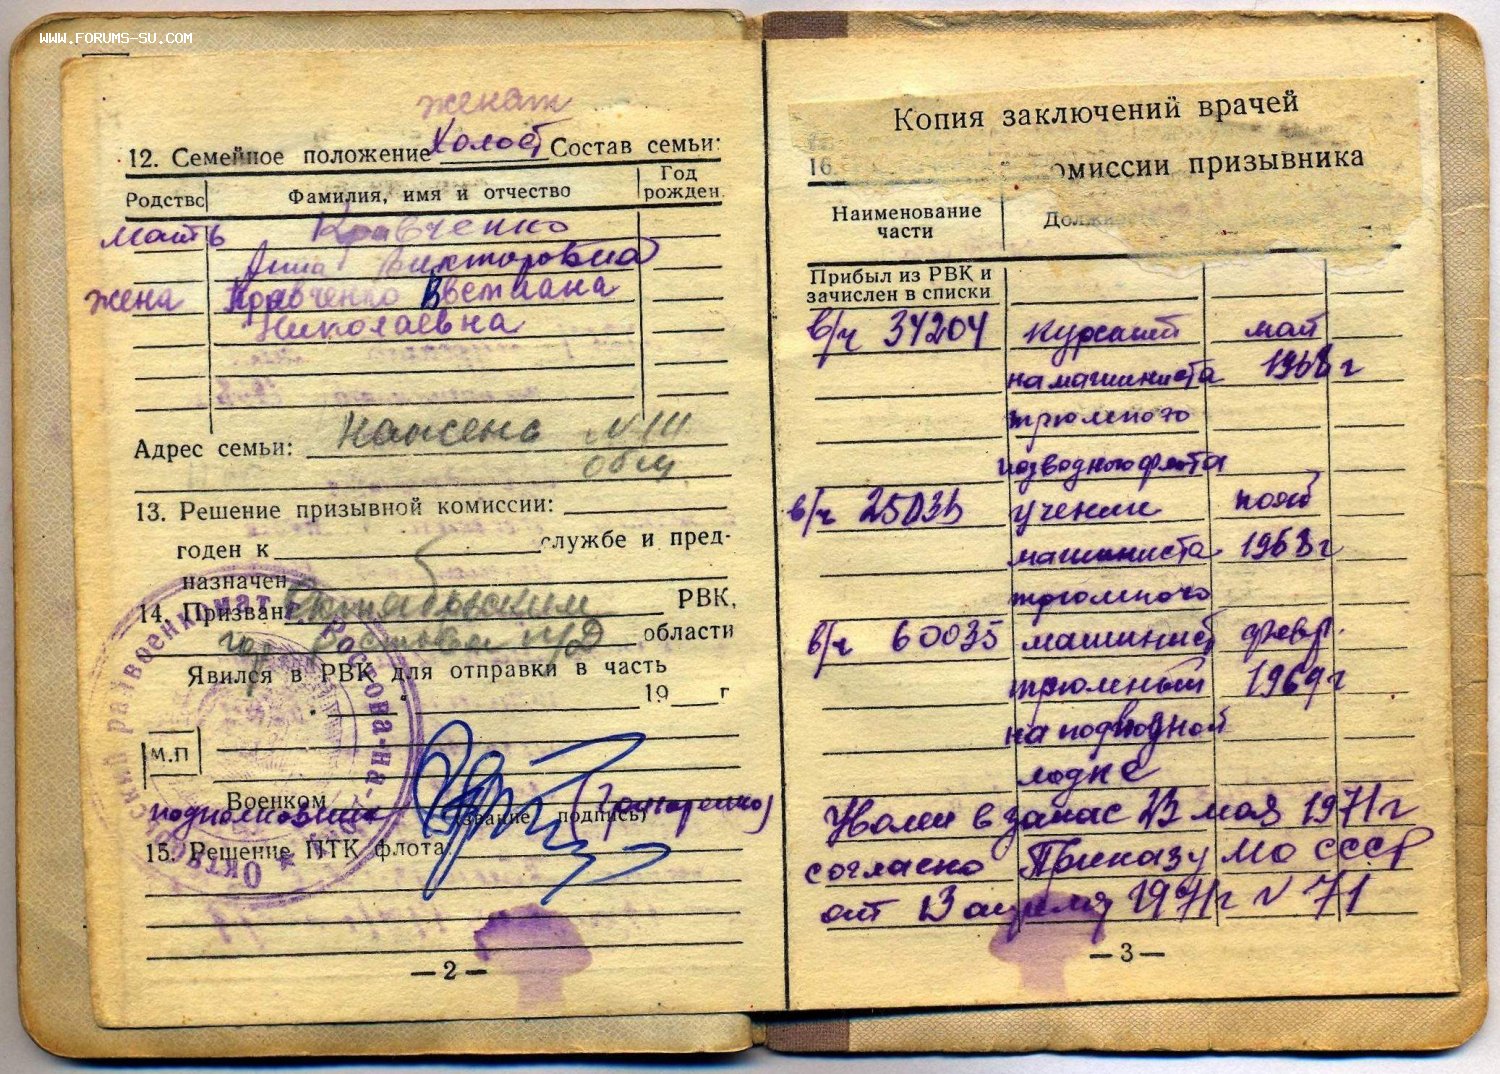 WWW.FORUMS-SU.COM
женат
12. Семейное положение Холост Состав семьи:
Родство Фамилия, имя и отчество Год рожден.
мать Кравченко
Анна Викторовна
жена Кравченко Светлана
Николаевна
Адрес семьи: Нансена №
общ
13. Решение призывной комиссии:
годен к службе и пред-
назначен
14. Призван Октябрьским РВК,
гор Ростова н/Д области
Явился в РВК для отправки в часть
19 г
М.П
Военком
подполковник (звание, подпись) (Гончаренко)
15. Решение ПТК флота
Октябрьский райвоенкомат г. Ростова-на-Дону
— 2 —
Копия заключений врачей
16. омиссии призывника
Наименование
части
Должн
Прибыл из РВК и
зачислен в списки
в/ч 34204 курсант май
на машиниста 1968 г
трюмного
подводного флота
в/ч 25035 ученик нояб
машиниста 1968 г
трюмного
в/ч 60035 машинист февр.
трюмный 1969 г
на подводной
лодке
Уволен в запас 23 мая 1971 г
согласно Приказу МО СССР
от 13 апреля 1971 г № 71
— 3 —